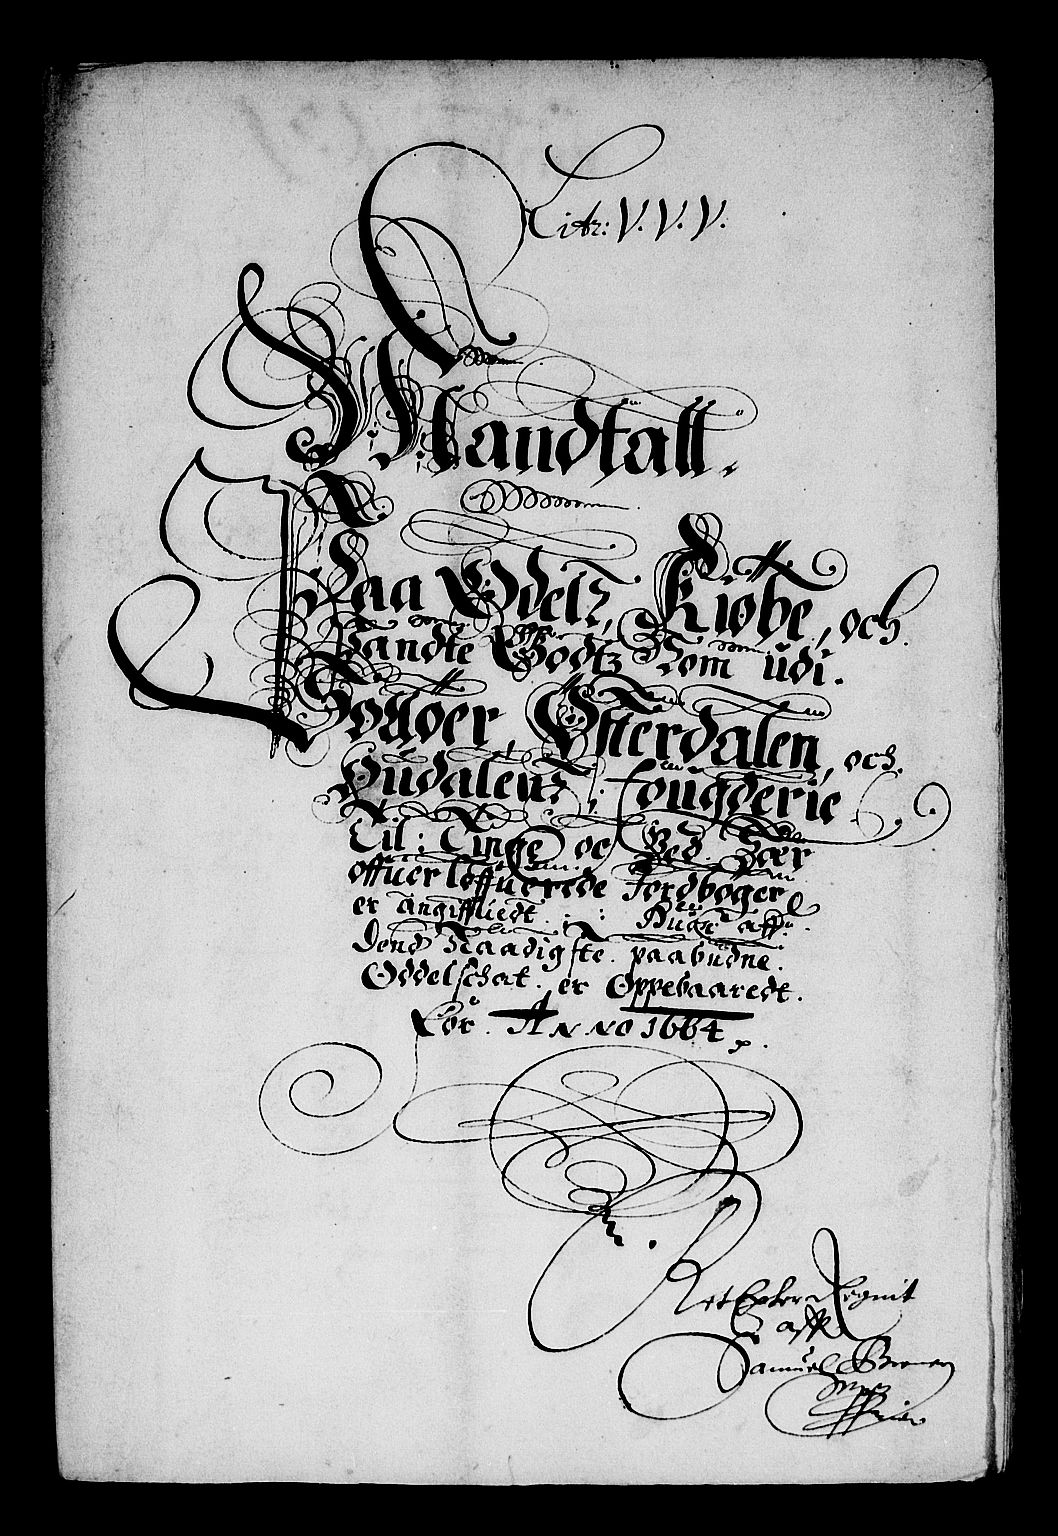 Litr: V. V. V.
Mandtall.
Paa Odelz, Kiøbe, och
Pandte Godtz Som udi.
Solløer, Østerdalen, och
Gudalens fougderie
Til: Tinge oc Ved Hær
offuerløffuerede Jordbøger
er angiffuedt. Huor aff.
dend Naadigste. paabudne.
Oddelschat. er Oppebaaredt.
For. Anno 1664
Ret Epter Regnit
aff
Samuel